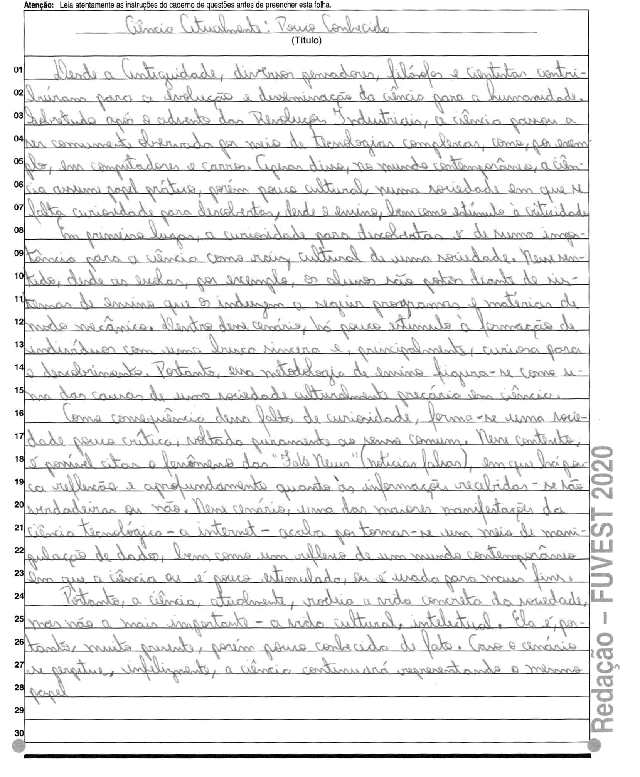 Atenção: Leia atentamente as instruções do caderno de questões antes de preencher esta folha.
Ciência Atualmente: Pouco Conhecida
(Título)
01 Desde a Antiguidade, diversos pensadores, filósofos e cientistas contri-
02 buíram para a evolução e disseminação da ciência para a humanidade.
03 Sobretudo após o advento das Revoluções Industriais, a ciência passou a
04 ser comumente observada por meio de tecnologias complexas, como, por exem-
05 plo, em computadores e carros. Apesar disso, no mundo contemporâneo, a ciên-
06 cia assume papel prático, porém pouco cultural, numa sociedade em que se
07 falta curiosidade para descobertas, desde o ensino, bem como estímulo à criticidade
08 Em primeiro lugar, a curiosidade para descobertas é de suma impor-
09 tância para a ciência como raiz cultural de uma sociedade. Nesse sen-
10 tido, desde as escolas, por exemplo, os alunos são postos diante de sis-
11 temas de ensino que os induzem a seguir programas e matérias de
12 modo mecânico. Dentro desse cenário, há pouco estímulo à formação de
13 indivíduos com uma busca sincera e, principalmente, curiosa para
14 o descobrimento. Portanto, essa metodologia de ensino figura-se como u-
15 ma das causas de uma sociedade culturalmente precária em ciência.
16 Como consequência dessa falta de curiosidade, forma-se uma socie-
17 dade pouco crítica, voltada puramente ao senso comum. Nesse contexto,
18 é possível citar o fenômeno das "Fake News" (notícias falsas), em que há pou-
19 ca reflexão e aprofundamento quanto às informações recebidas - se são
20 verdadeiras ou não. Nesse cenário, uma das maiores manifestações da
21 ciência tecnológica - a internet - acaba por tornar-se um meio de mani-
22 pulação de dados, bem como um reflexo de um mundo contemporâneo
23 em que a ciência ou é pouco estimulada, ou é usada para maus fins.
24 Portanto, a ciência, atualmente, rodeia a vida concreta da sociedade,
25 mas não a mais importante - a vida cultural, intelectual. Ela é, por-
26 tanto, muito presente, porém pouco conhecida de fato. Caso o cenário
27 se perpetue, infelizmente, a ciência continuará representando o mesmo
28 papel
29
30
Redação – FUVEST 2020